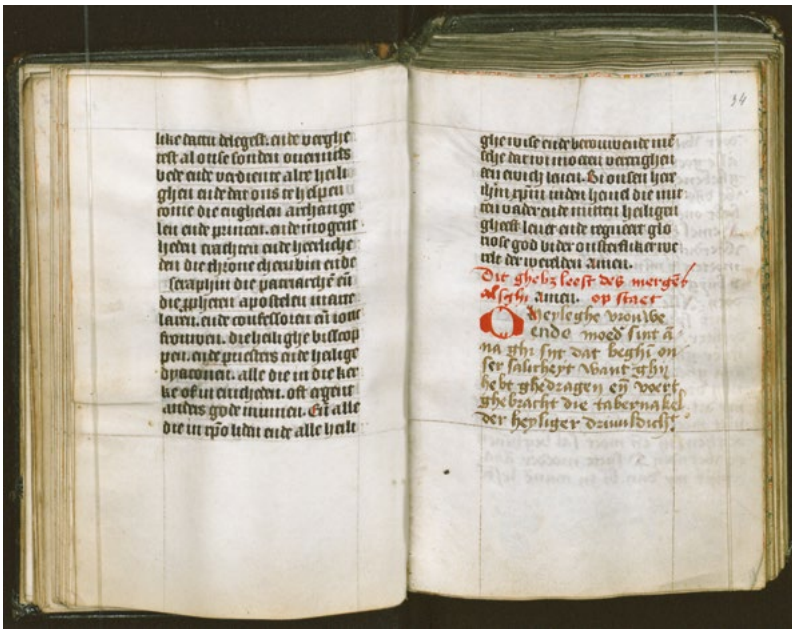 like dattu delegest. ende verghe
test al onse sonden ouermids
bede ende verdiente alre heili
ghen ende dat ons te helpen
come die enghelen archange
len ende princen. ende mogent
heden crachten ende heerliche
den die throne cherubin ende
seraphin die patriarchē eñ
die ꝓpheten apostelen marte
laren. ende confessoren eñ ionc
frouwen. die heilighe bisscop
pen. ende priesters ende heilige
dyaconen. alle die in die ker
ke of in eincheden. oft ergent
anders gode minnen. Eñ alle
die in xp̄o liden ende alle heili
34
ghe wise ende
sche dat wi moeten vercrighen
ten ewich leuen. Bi onsen here
ihūm xp̄um inden hemel die mit
ten vader ende mitten heiligen
gheest leuet ende regneert glo
riose god
der werelden Amen.
Dit gheb leest des merges
als ghi Amen. op staet
O Heyleghe vrouwe
ende moed̄ sint ā
na ghi sijt dat beghī on
ser salicheit want ghij
hebt ghedragen eñ voert
ghebracht die tabernakel
der heyliger driuuldich